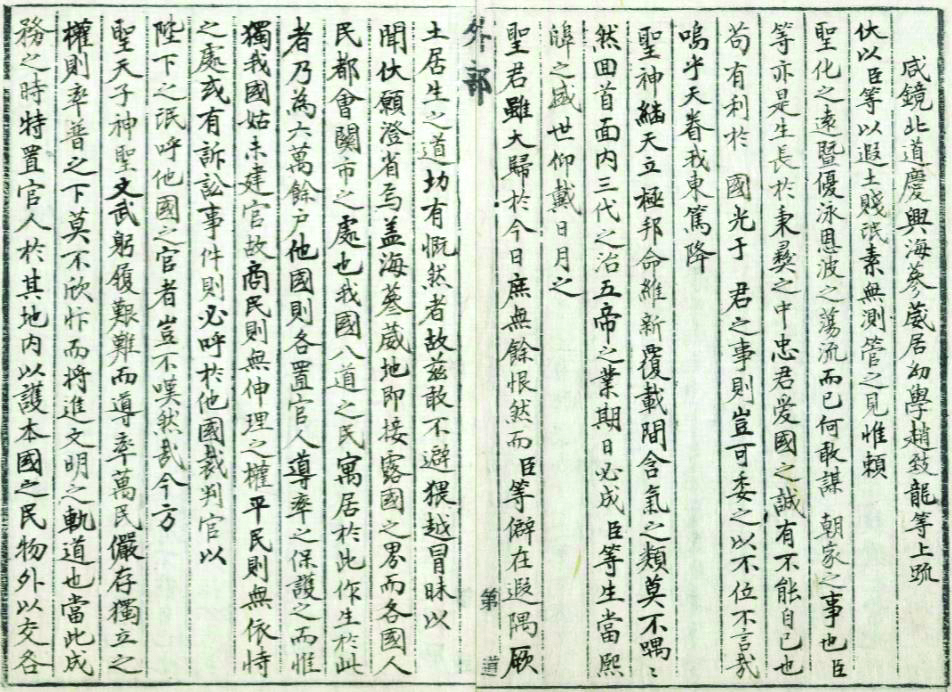 咸鏡北道慶興海蔘葳居幼學趙致龍等上疏
伏以臣等以遐土賤氓素無測管之見惟賴
聖化之遠曁優泳恩波之蕩流而已何敢謀 朝家之事也臣
等亦是生長於秉彛之中忠君愛国之誠有不能自已也
苟有利於 國光于 君之事則豈可委之以不位不言哉
嗚乎天眷我東篤降
聖神継天立極邦命維新覆載間含氣之類莫不喁〻
然囬首面内三代之治五帝之業期日必成臣等生當熙
皥之盛世仰戴日月之
聖君雖大歸於今日庶無餘恨然而臣等僻在遐隅厥
外部 第 道
土居生之道切有慨然者故兹敢不避猥越冒昧以
聞伏願澄省焉盖海蔘葳地即接露國之界而各國人
民都會關市之處也我國八道之民寓居於此作生於此
者乃為六萬餘户他國則各置官人導率之保護之而惟
獨我國姑未建官故商民則無伸理之權平民則無依恃
之處或有訴訟事件則必呼於他國裁判官以
陛下之氓呼他國之官者豈不嘆然哉今方
聖天子神聖文武躬履艱難而導率萬民儼存獨立之
權則率普之下莫不欣忭而将進文明之軌道也當此成
務之時特置官人於其地内以護本國之民物外以交各